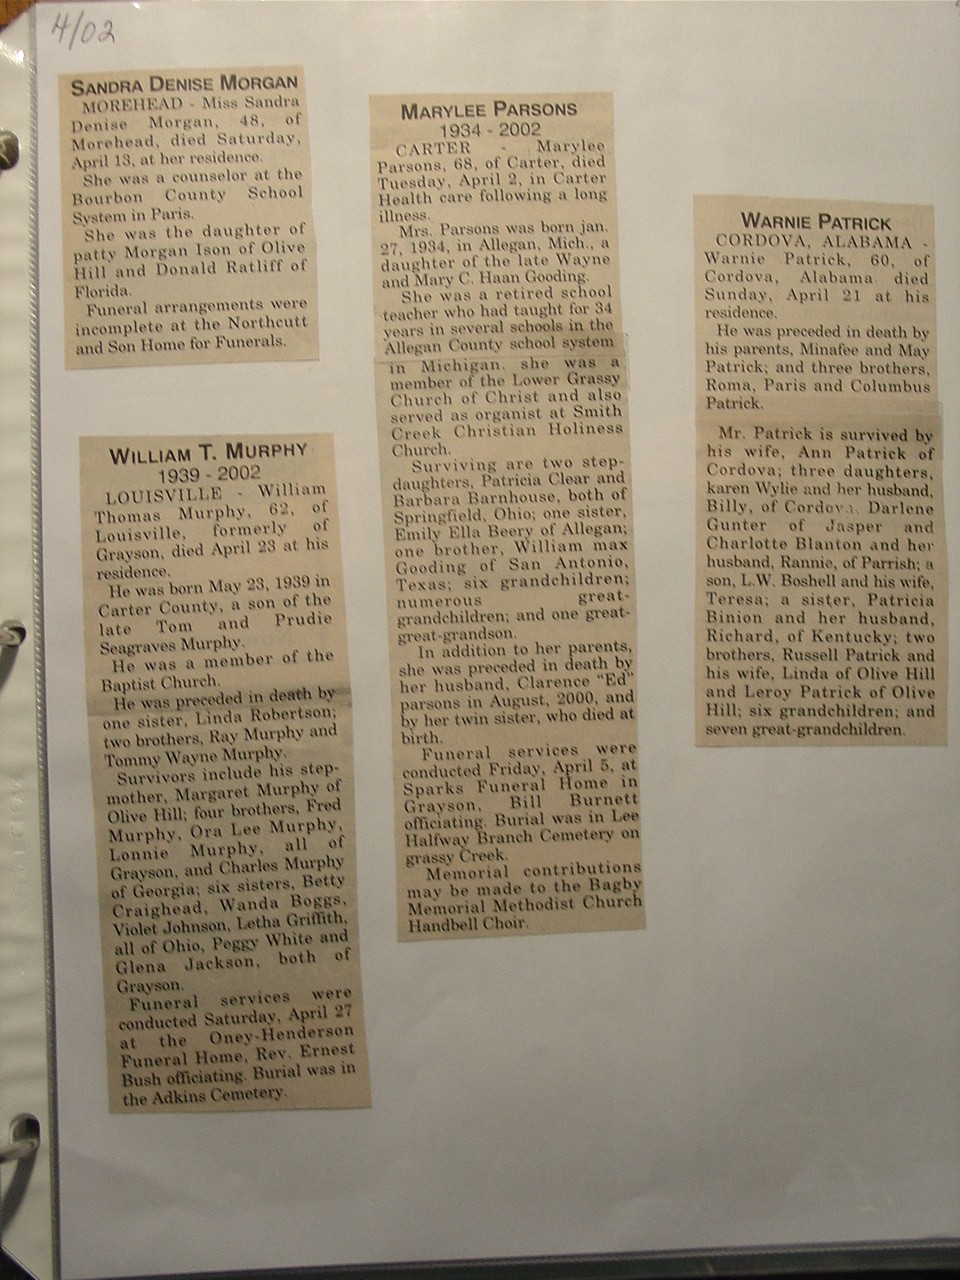 4/02
SANDRA DENISE MORGAN
MOREHEAD - Miss Sandra
Denise Morgan, 48, of
Morehead, died Saturday,
April 13, at her residence.
She was a counselor at the
Bourbon County School
System in Paris.
She was the daughter of
patty Morgan Ison of Olive
Hill and Donald Ratliff of
Florida.
Funeral arrangements were
incomplete at the Northcutt
and Son Home for Funerals.
WILLIAM T. MURPHY
1939 - 2002
LOUISVILLE - William
Thomas Murphy, 62, of
Louisville, formerly of
Grayson, died April 23 at his
residence.
He was born May 23, 1939 in
Carter County, a son of the
late Tom and Prudie
Seagraves Murphy.
He was a member of the
Baptist Church.
He was preceded in death by
one sister, Linda Robertson;
two brothers, Ray Murphy and
Tommy Wayne Murphy.
Survivors include his step-
mother, Margaret Murphy of
Olive Hill; four brothers, Fred
Murphy, Ora Lee Murphy,
Lonnie Murphy, all of
Grayson, and Charles Murphy
of Georgia; six sisters, Betty
Craighead, Wanda Boggs,
Violet Johnson, Letha Griffith,
all of Ohio, Peggy White and
Glena Jackson, both of
Grayson.
Funeral services were
conducted Saturday, April 27
at the Oney-Henderson
Funeral Home, Rev. Ernest
Bush officiating. Burial was in
the Adkins Cemetery.
MARYLEE PARSONS
1934 - 2002
CARTER - Marylee
Parsons, 68, of Carter, died
Tuesday, April 2, in Carter
Health care following a long
illness.
Mrs. Parsons was born jan.
27, 1934, in Allegan, Mich., a
daughter of the late Wayne
and Mary C. Haan Gooding.
She was a retired school
teacher who had taught for 34
years in several schools in the
Allegan County school system
in Michigan. she was a
member of the Lower Grassy
Church of Christ and also
served as organist at Smith
Creek Christian Holiness
Church.
Surviving are two step-
daughters, Patricia Clear and
Barbara Barnhouse, both of
Springfield, Ohio; one sister,
Emily Ella Beery of Allegan;
one brother, William max
Gooding of San Antonio,
Texas; six grandchildren;
numerous great-
grandchildren; and one great-
great-grandson.
In addition to her parents,
she was preceded in death by
her husband, Clarence "Ed"
parsons in August, 2000, and
by her twin sister, who died at
birth.
Funeral services were
conducted Friday, April 5, at
Sparks Funeral Home in
Grayson, Bill Burnett
officiating. Burial was in Lee
Halfway Branch Cemetery on
grassy Creek.
Memorial contributions
may be made to the Bagby
Memorial Methodist Church
Handbell Choir.
WARNIE PATRICK
CORDOVA, ALABAMA -
Warnie Patrick, 60, of
Cordova, Alabama died
Sunday, April 21 at his
residence.
He was preceded in death by
his parents, Minafee and May
Patrick; and three brothers,
Roma, Paris and Columbus
Patrick.
Mr. Patrick is survived by
his wife, Ann Patrick of
Cordova; three daughters,
karen Wylie and her husband,
Billy, of Cordova. Darlene
Gunter of Jasper and
Charlotte Blanton and her
husband, Rannie, of Parrish; a
son, L.W. Boshell and his wife,
Teresa; a sister, Patricia
Binion and her husband,
Richard, of Kentucky; two
brothers, Russell Patrick and
his wife, Linda of Olive Hill
and Leroy Patrick of Olive
Hill; six grandchildren; and
seven great-grandchildren.